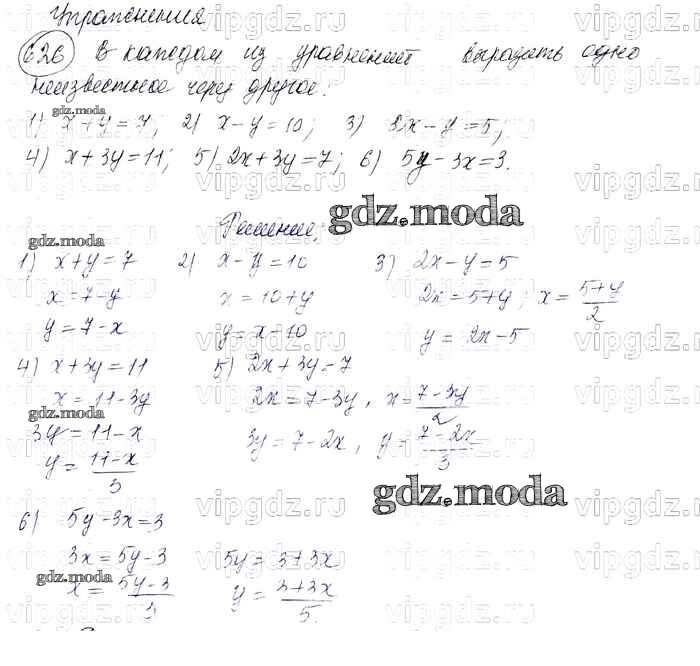 Упражнения
626 В каждом из уравнений выразить одно
неизвестное через другое.
gdz.moda
1) x+y=7; 2) x-y=10; 3) 2x-y=5;
4) x+3y=11; 5) 2x+3y=7; 6) 5y-3x=3.
gdz.moda
Решение.
gdz.moda
1) x+y=7 2) x-y=10 3) 2x-y=5
x=7-y x=10+y 2x=5+y; x=\frac{5+y}{2}
y=7-x y=x-10 y=2x-5
4) x+3y=11 5) 2x+3y-7
x=11-3y 2x=7-3y, x=\frac{7-3y}{2}
gdz.moda
3y=11-x 3y=7-2x, y=\frac{7-2x}{3}
y=\frac{11-x}{3}
gdz.moda
6) 5y-3x=3
3x=5y-3 5y=3+3x
gdz.moda
x=\frac{5y-3}{3} y=\frac{3+3x}{5}.
vipgdz.ru